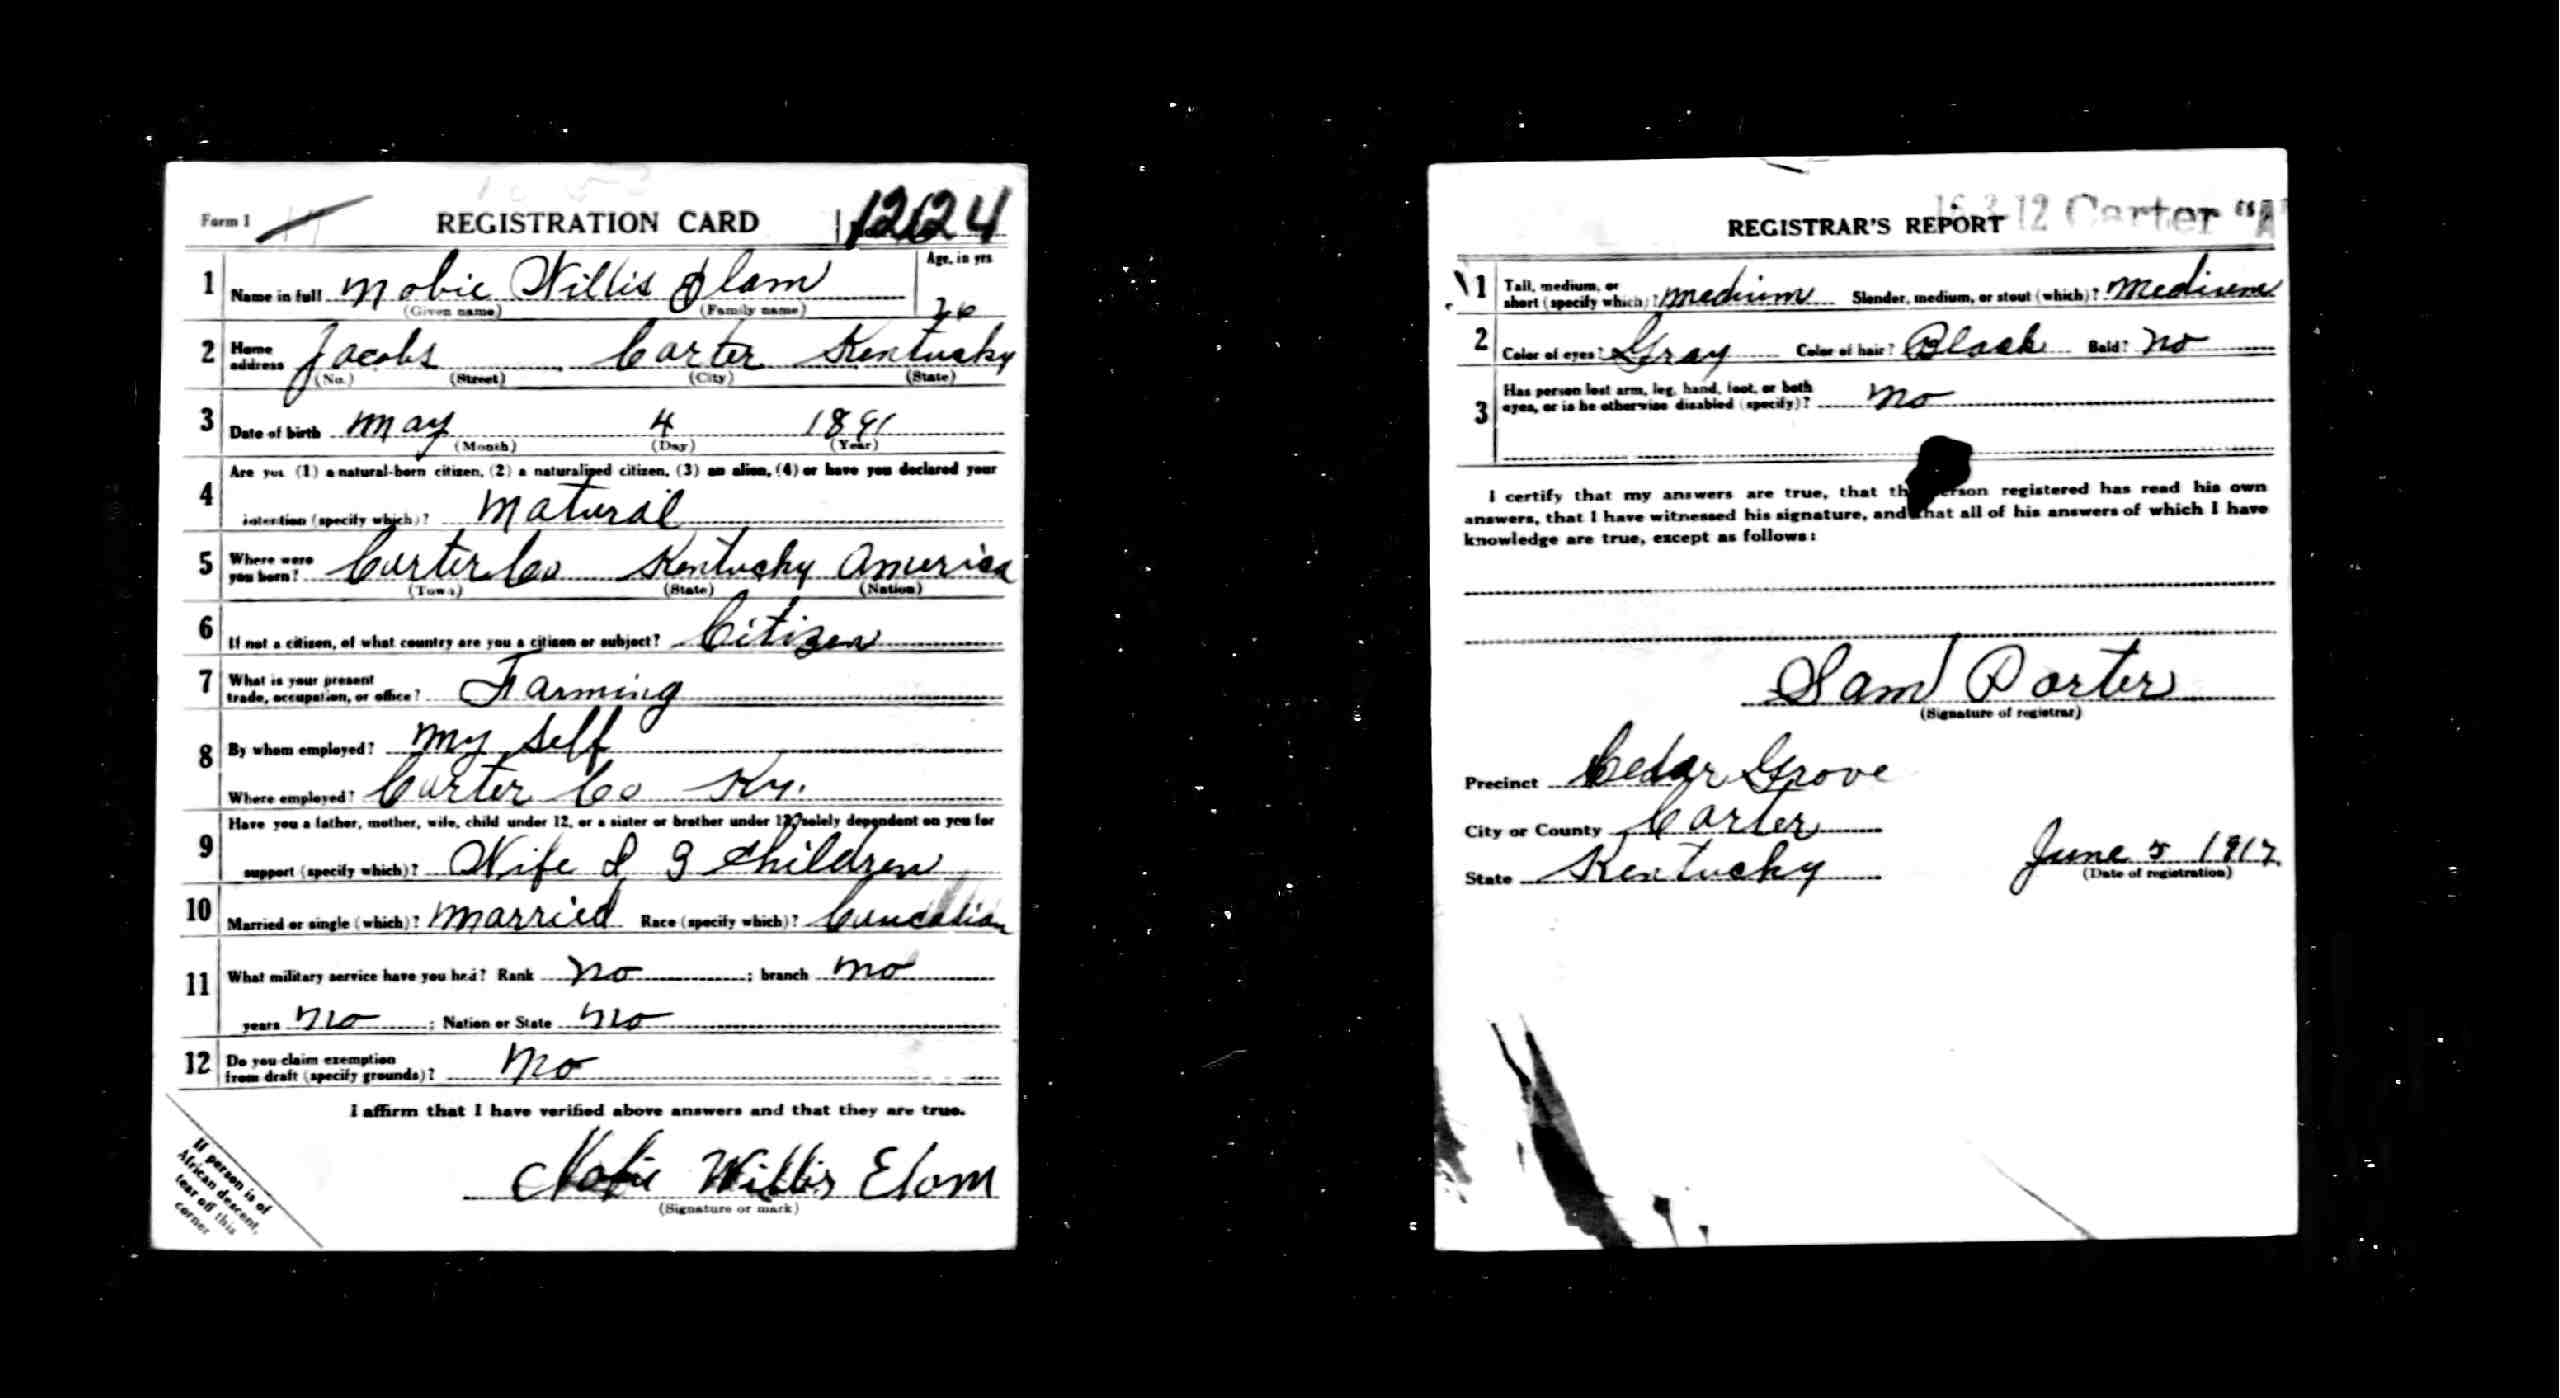 Form 1 REGISTRATION CARD 12124
1 Name in full Mobie Willis Elam Age, in yrs 26
(Given name) (Family name)
2 Home address Jacobs Carter Kentucky
(No.) (Street) (City) (State)
3 Date of birth May 4 1891
(Month) (Day) (Year)
4 Are you (1) a natural-born citizen, (2) a naturalized citizen, (3) an alien, (4) or have you declared your
intention (specify which)? Natural
5 Where were you born? Carter Co Kentucky America
(Town) (State) (Nation)
6 If not a citizen, of what country are you a citizen or subject? Citizen
7 What is your present
trade, occupation, or office? Farming
8 By whom employed? My self
Where employed? Carter Co Ky.
9 Have you a father, mother, wife, child under 12, or a sister or brother under 12, solely dependent on you for
support (specify which)? Wife & 3 Children
10 Married or single (which)? Married Race (specify which)? Caucasian
11 What military service have you had? Rank no ; branch no
years no ; Nation or State no
12 Do you claim exemption
from draft (specify grounds)? No
I affirm that I have verified above answers and that they are true.
Mobie Willis Elam
(Signature or mark)
If person is of
African descent,
tear off this
corner
REGISTRAR'S REPORT 12 Carter "A"
1 Tall, medium, or
short (specify which)? Medium Slender, medium, or stout (which)? Medium
2 Color of eyes? Gray Color of hair? Black Bald? No
3 Has person lost arm, leg, hand, foot, or both
eyes, or is he otherwise disabled (specify)? No
I certify that my answers are true, that the person registered has read his own
answers, that I have witnessed his signature, and that all of his answers of which I have
knowledge are true, except as follows:
Sam Porter
(Signature of registrar)
Precinct Cedar Grove
City or County Carter
State Kentucky June 5 1917
(Date of registration)